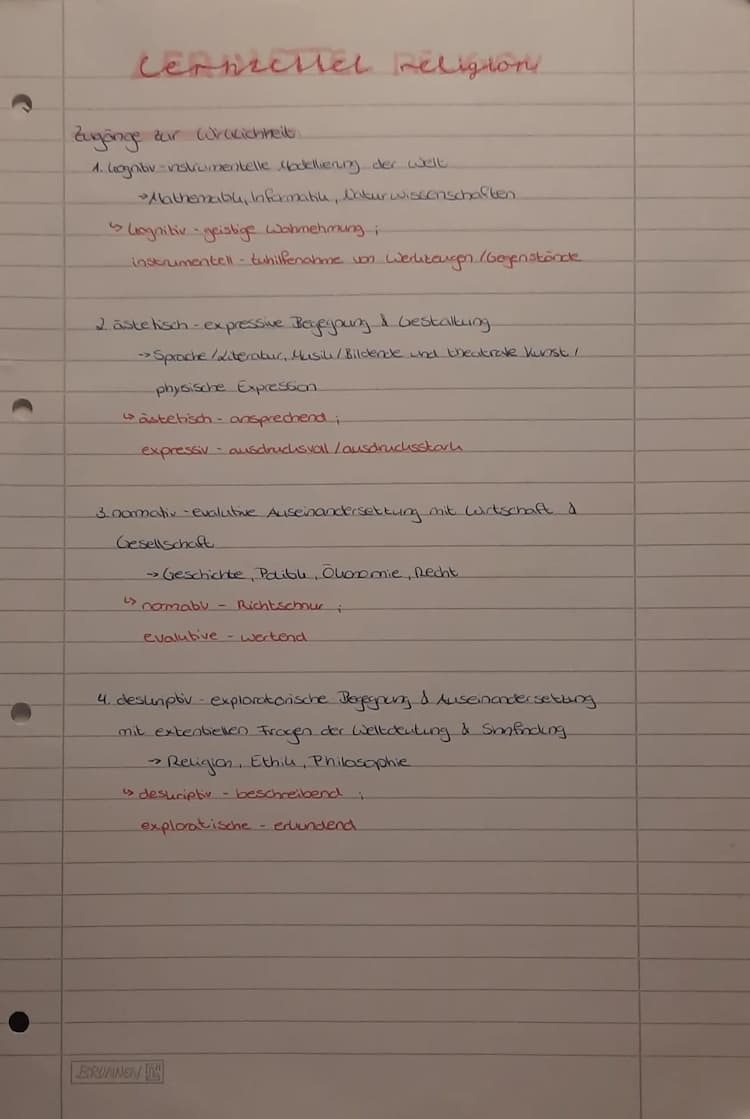 Lernzettel Religion
Zugänge zur Wirklichkeit
1. kognitiv-instrumentelle Modellierung der Welt
→ Mathematik, Informatik, Naturwissenschaften
↳ kognitiv - geistige Wahrnehmung ;
instrumentell - zuhilfenahme von Werkzeugen / Gegenstände
2. ästetisch - expressive Begegnung & Gestaltung
→ Sprache / Literatur, Musik / Bildende und theatrale Kunst /
physische Expression
↳ ästetisch - ansprechend ;
expressiv - ausdrucksvoll / ausdrucksstark
3. normativ - evalutive Auseinandersetzung mit Wirtschaft &
Gesellschaft
→ Geschichte, Politik, Ökonomie, Recht
↳ normativ - Richtschnur ;
evalutive - wertend
4. deskriptiv - exploratorische Begegnung & Auseinandersetzung
mit extentiellen Fragen der Weltdeutung & Sinnfindung
→ Religion, Ethik, Philosophie
↳ deskriptiv - beschreibend ;
exploratische - erkundend
BRUNNEN